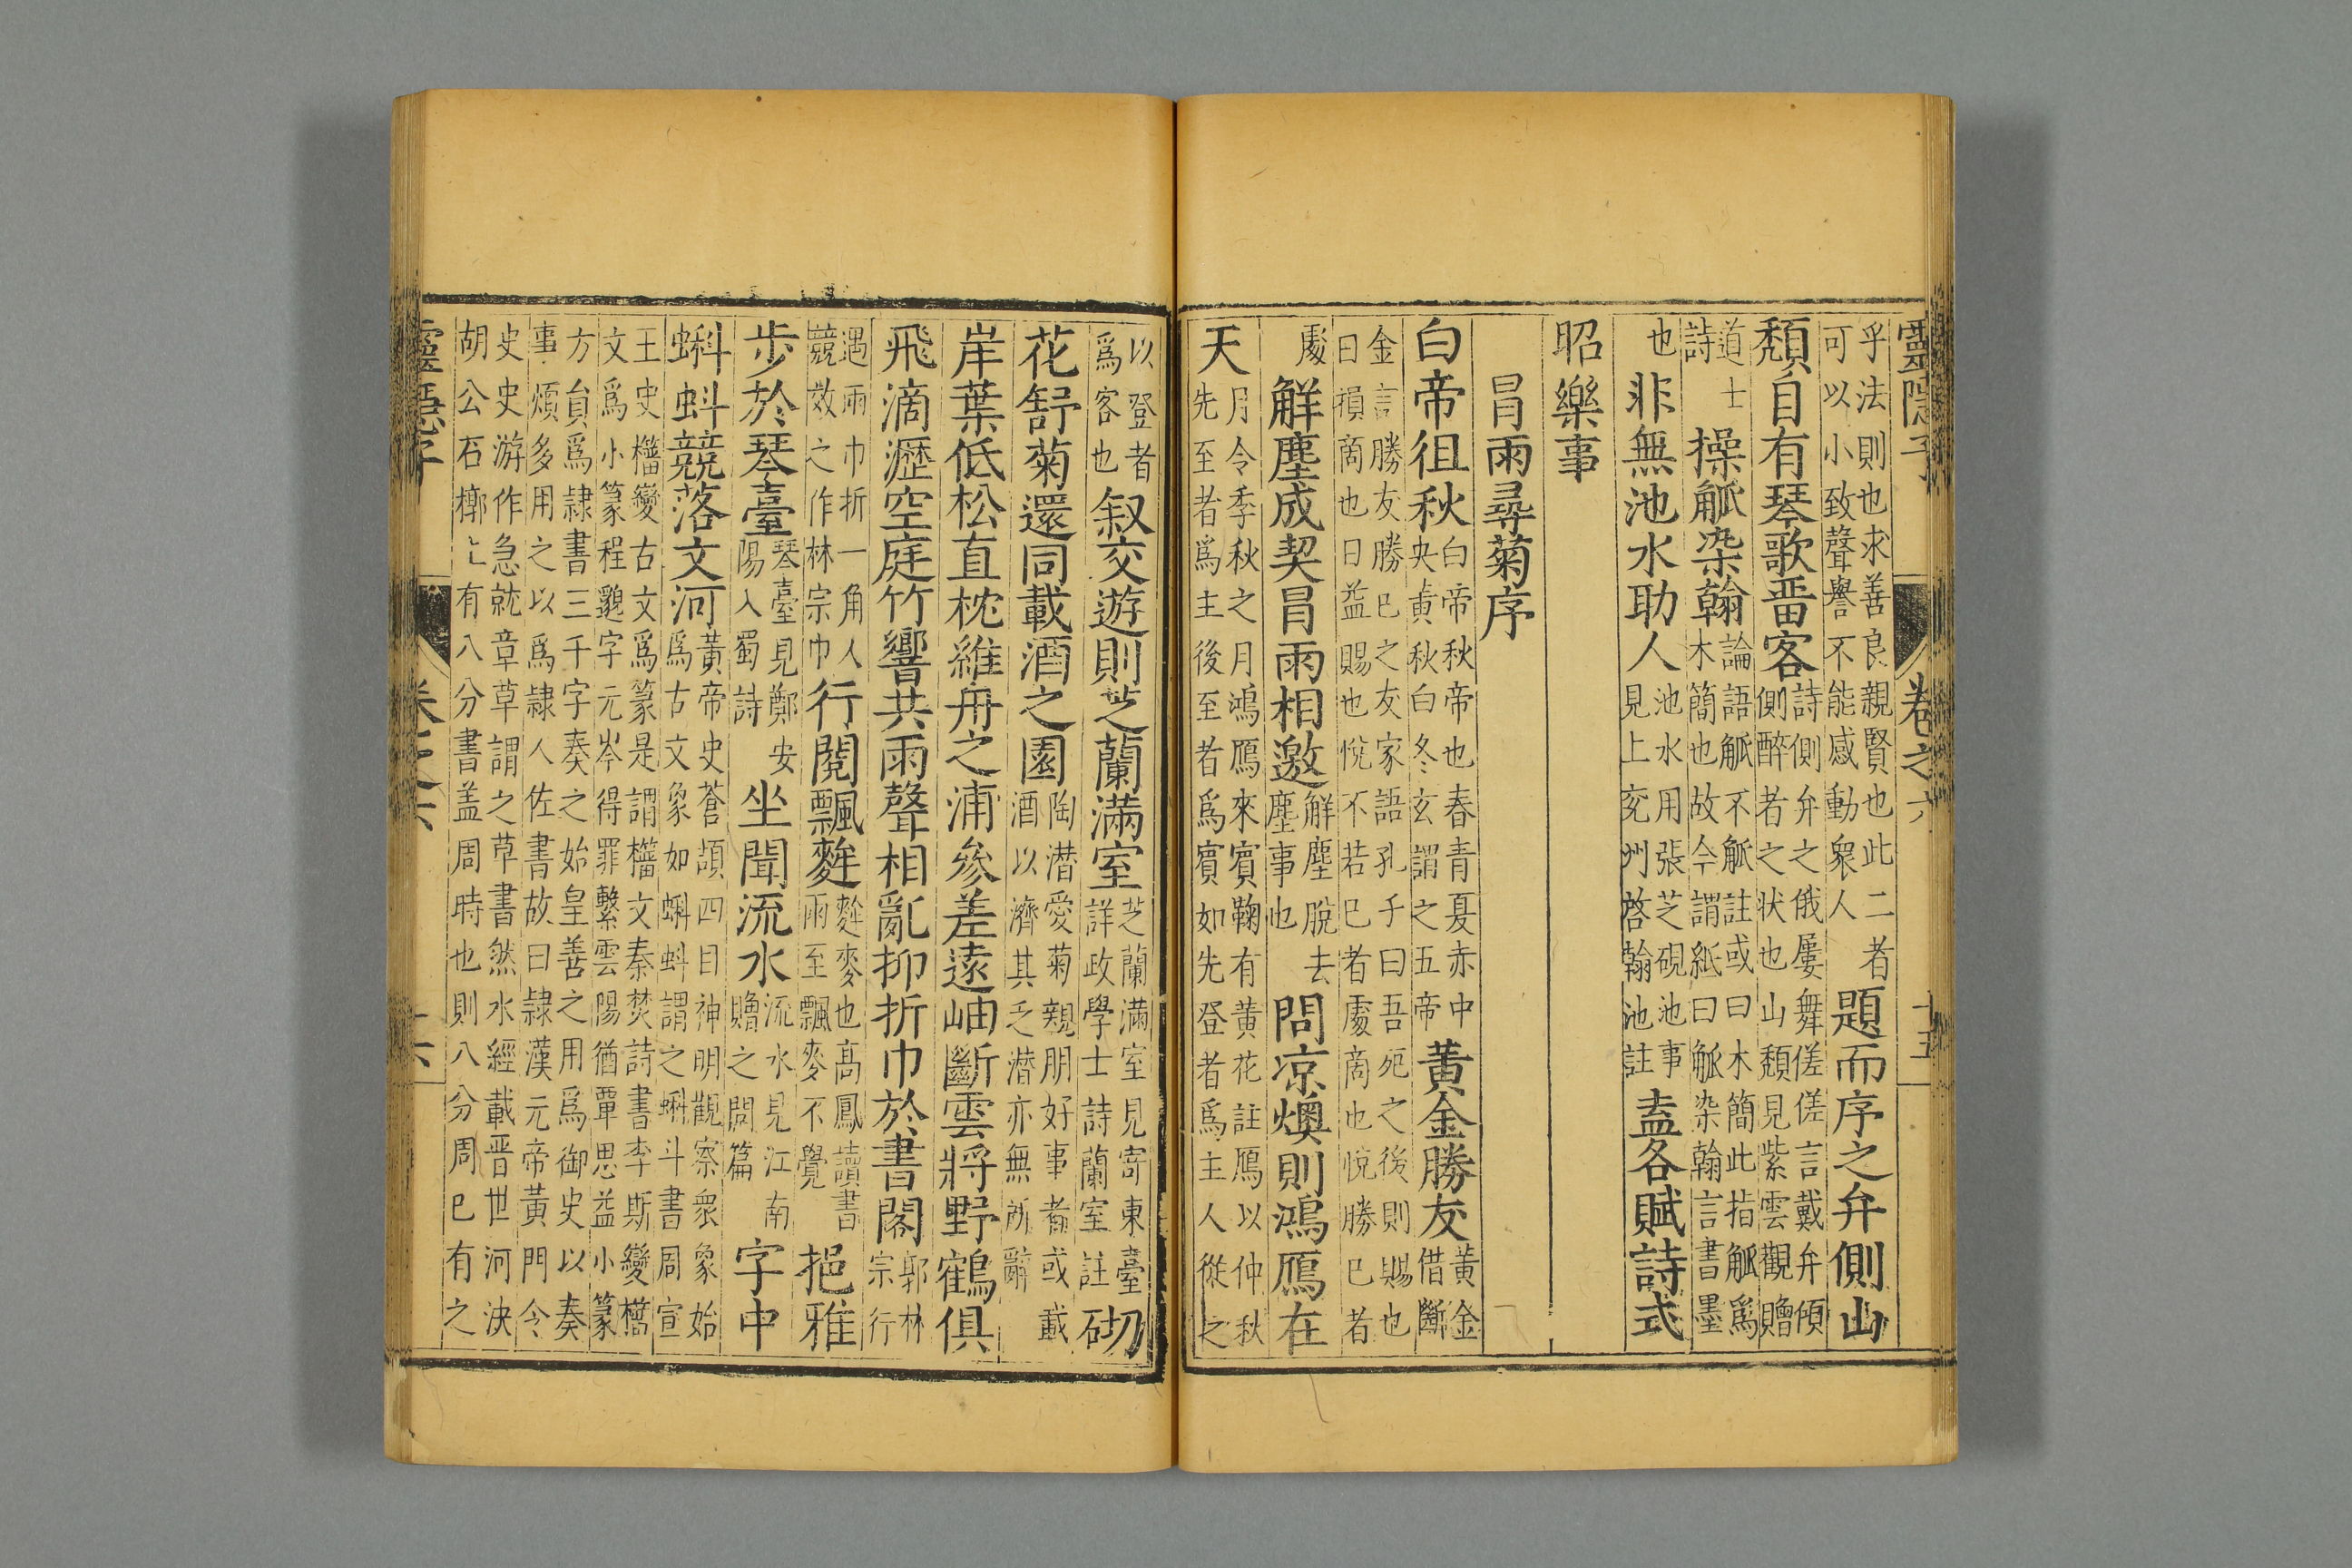 靈隱子 卷之六 十五
孚法則也求善良親賢也此二者
可以小致聲譽不能感動衆人
題而序之弁側山
頽自有琴歌畱客
詩側弁之俄屢舞傞傞言戴弁傾
側醉者之状也山頽見紫雲觀贈
道士
詩
操觚染翰
論語觚不觚註或曰木簡此指觚爲
木簡也故今謂紙曰觚染翰言書墨
也
非無池水助人
池水用張芝硯池事
見上兗州啓翰池註
盍各賦詩式
昭樂事
冒雨尋菊序
白帝徂秋
白帝秋帝也春青夏赤中
央黄秋白冬玄謂之五帝
黃金勝友
黃金
借斷
金言勝友勝巳之友家語孔子曰吾死之後則賜也
日損啇也日益賜也悅不若巳者處啇也悅勝巳者
處
解塵成契冒雨相邀
解塵脫去
塵事也
問凉燠則鴻鴈在
天
月令季秋之月鴻鴈來賓鞠有黃花註鴈以仲秋
先至者爲主後至者爲賓如先登者爲主人從之
以登者
爲客也
叙交遊則芝蘭滿室
芝蘭滿室見寄東臺
詳政學士詩蘭室註
砌
花舒菊還同載酒之園
陶潜愛菊親朋好事者或載
酒以濟其乏潜亦無所辭
岸葉低松直枕維舟之浦參差遠岫斷雲將野鶴俱
飛滴瀝空庭竹響共雨聲相亂抑折巾於書閣
郭林
宗行
遇雨巾折一角人
競效之作林宗巾
行閱飄麰
麰麥也高鳳讀書
雨至飄麥不覺
挹雅
步於琴臺
琴臺見鄭安
陽入蜀詩
坐聞流水
流水見江南
贈之問篇
字中
蝌蚪競落文河
黃帝史蒼頡四目神明觀察衆象始
爲古文象如蝌蚪謂之蝌斗書周宣
王史籒變古文爲篆是謂籒文秦焚詩書李斯變籒
文爲小篆程邈字元岑得罪繫雲陽獄覃思益小篆
方負爲隷書三千字奏之始皇善之用爲御史以奏
事煩多用之以爲隷人佐書故曰隷漢元帝黃門令
史史游作急就章草謂之草書然水經載晋世河決
胡公石槨亡有八分書盖周時也則八分周已有之
靈隱子 卷之六 十六